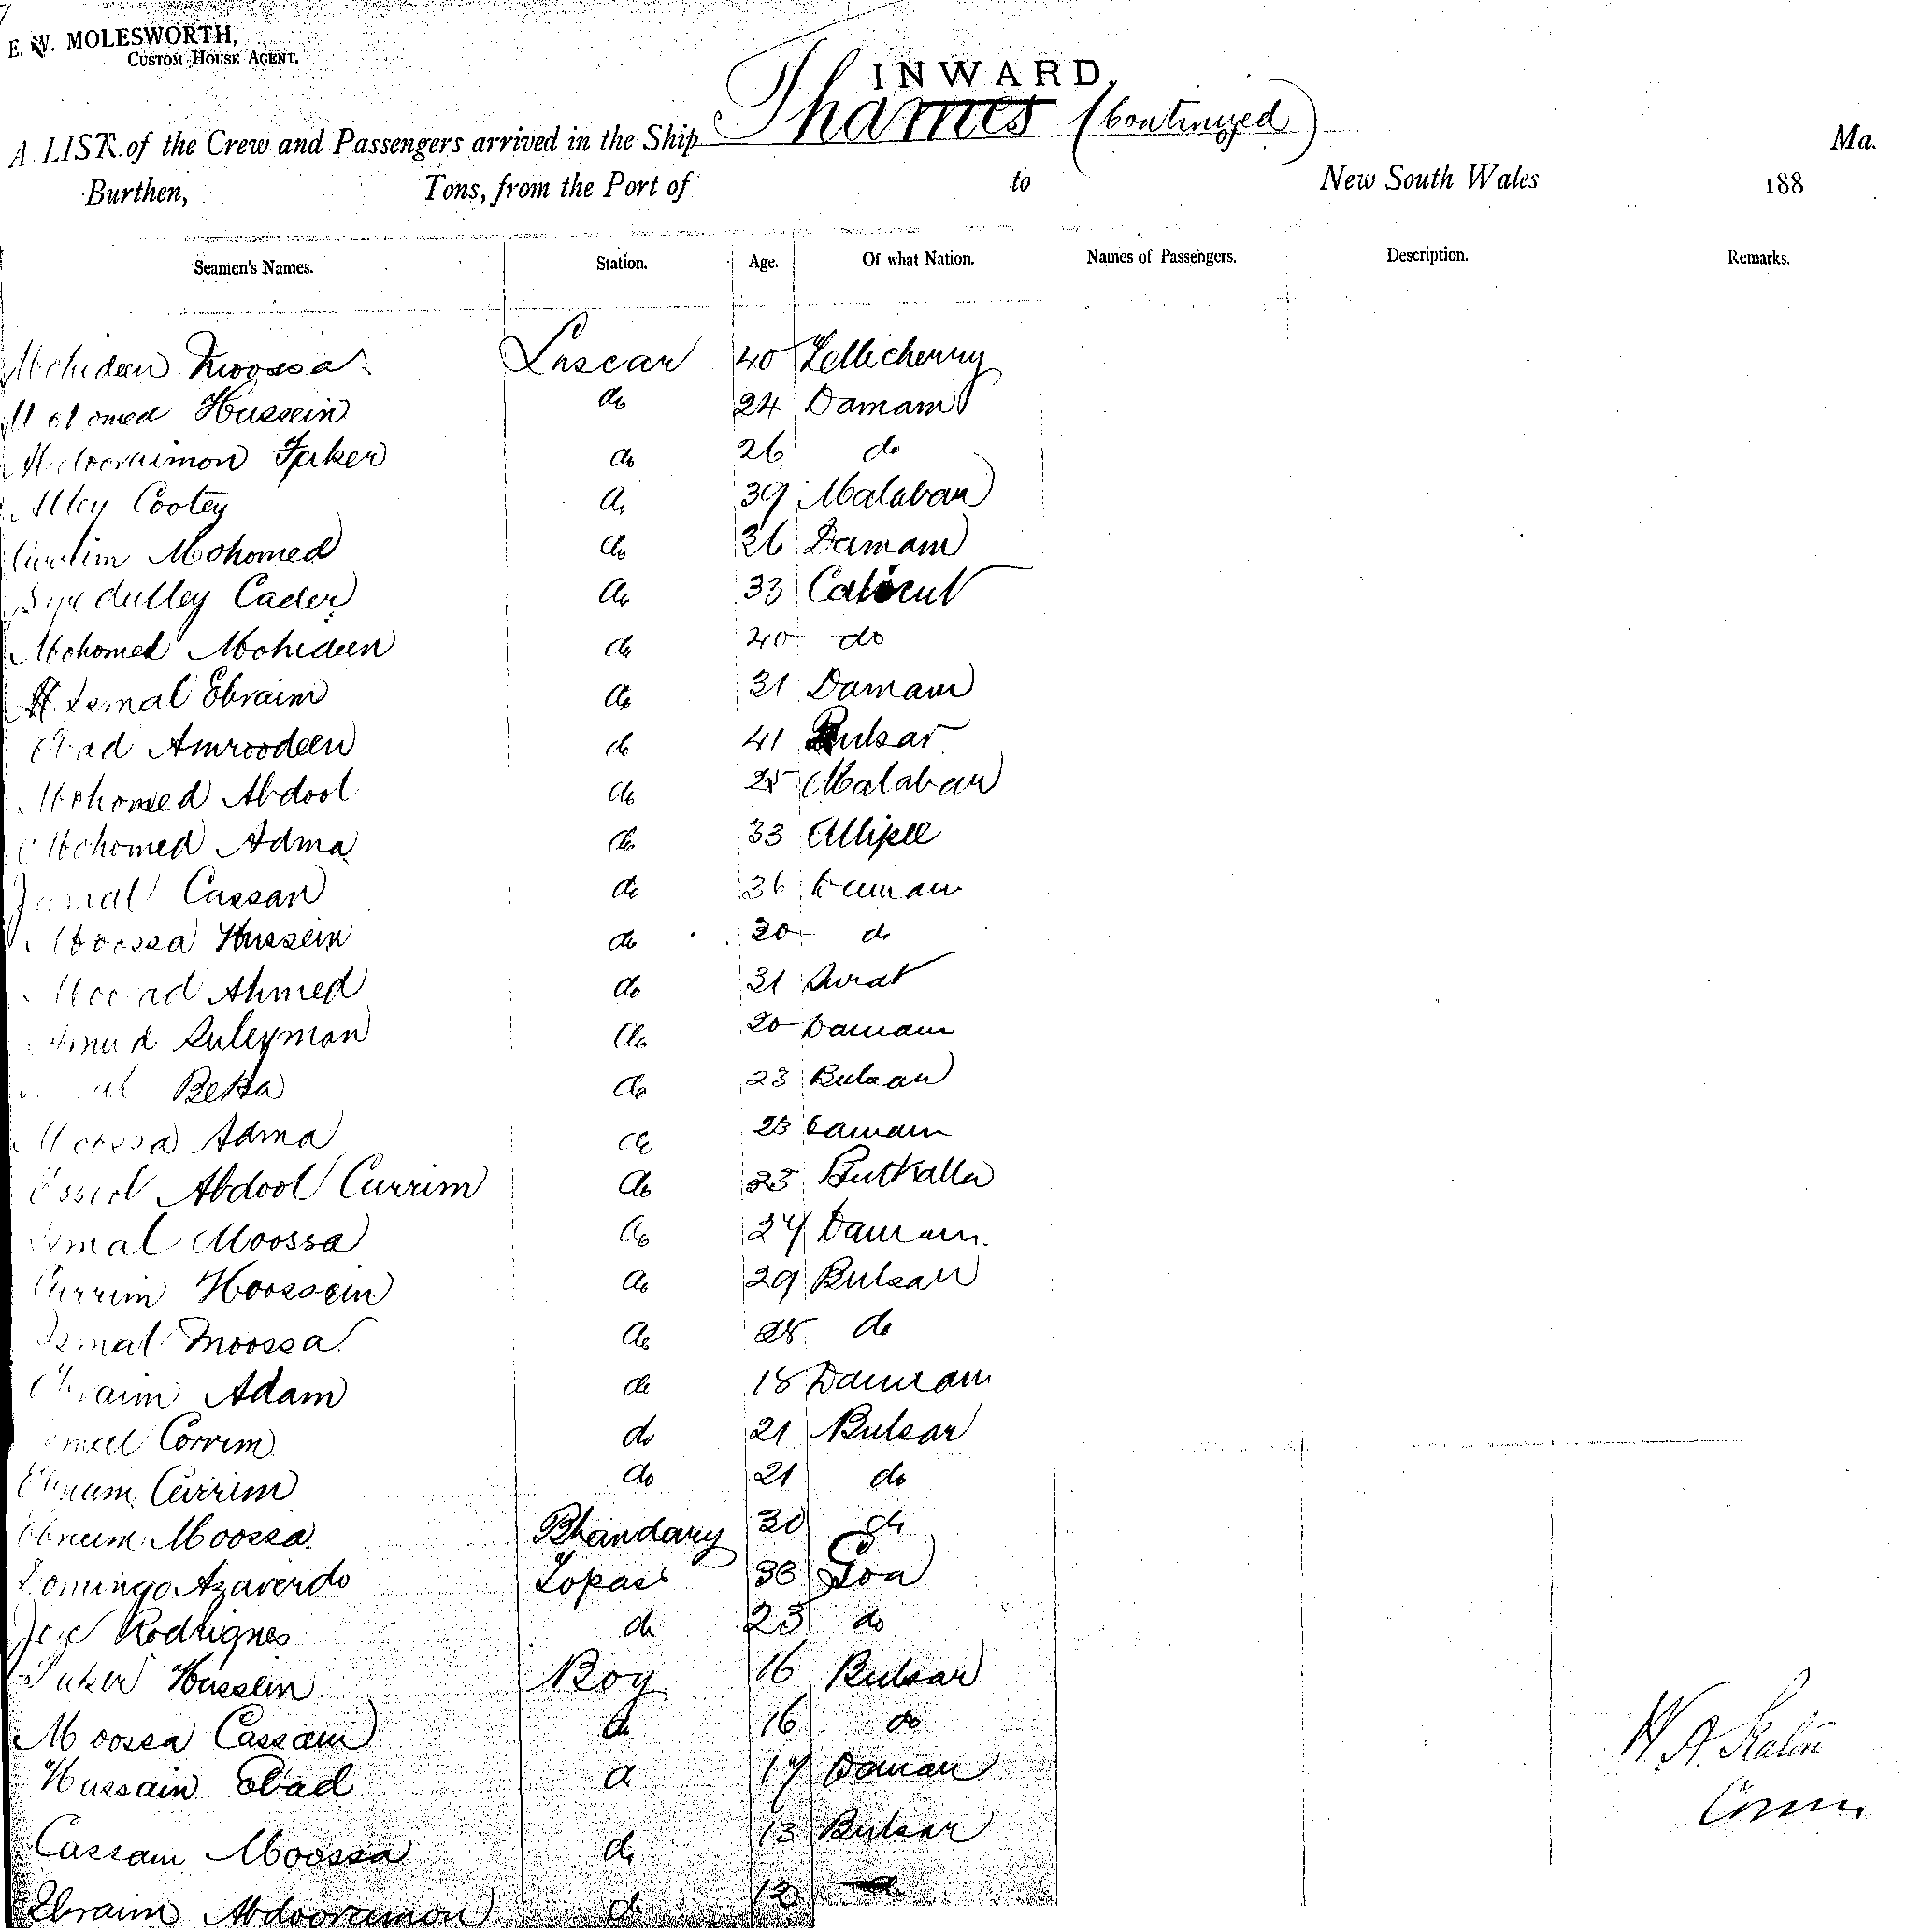 E. W. MOLESWORTH,
CUSTOM HOUSE AGENT.
INWARD.
A LIST of the Crew and Passengers arrived in the Ship Thames (Continued) of Ma.
Burthen, Tons, from the Port of to New South Wales 188
Seamen's Names. Station. Age. Of what Nation. Names of Passengers. Description. Remarks.
Mohideen Moossa Lascar 40 Tellicherry
Mohomed Hussein do 24 Damam
Abdooraimon Jaker do 26 do
Alley Cootey do 39 Malabar
Currim Mohomed do 36 Damam
Cader do 33 Calicut
Mohomed Mohideen do 40 do
Esmal Ebraim do 31 Damam
Ebad Amroodeen do 41 Bulsar
Mohomed Abdool do 25 Malabar
Mohomed Adma do 33 Allipee
Jamal Cassan do 36 Daman
Moossa Hussein do 20 do
Ahmed do 31 Surat
Suleyman do 20 Damam
Betta do 23 Bulsar
Moossa Adma do 23 Damam
Abdool Currim do 23 Butkalla
Esmal Moossa do 27 Damam
Currim Hoossein do 29 Bulsar
Esmal Moossa do 28 do
Ebraim Adam do 18 Damam
Esmal Corrim do 21 Bulsar
Ebraim Currim do 21 do
Ebraim Moossa Bhandary 30 do
Domingo Azaverdo Topass 38 Goa
Joze Rodrignes do 23 do
Jaker Hussein Boy 16 Bulsar
Moossa Cassam do 16 do
Hussain Ebad do 17 Daman
Cassam Moossa do 13 Bulsar
Ebraim Abdooraimon do 13
W. A.